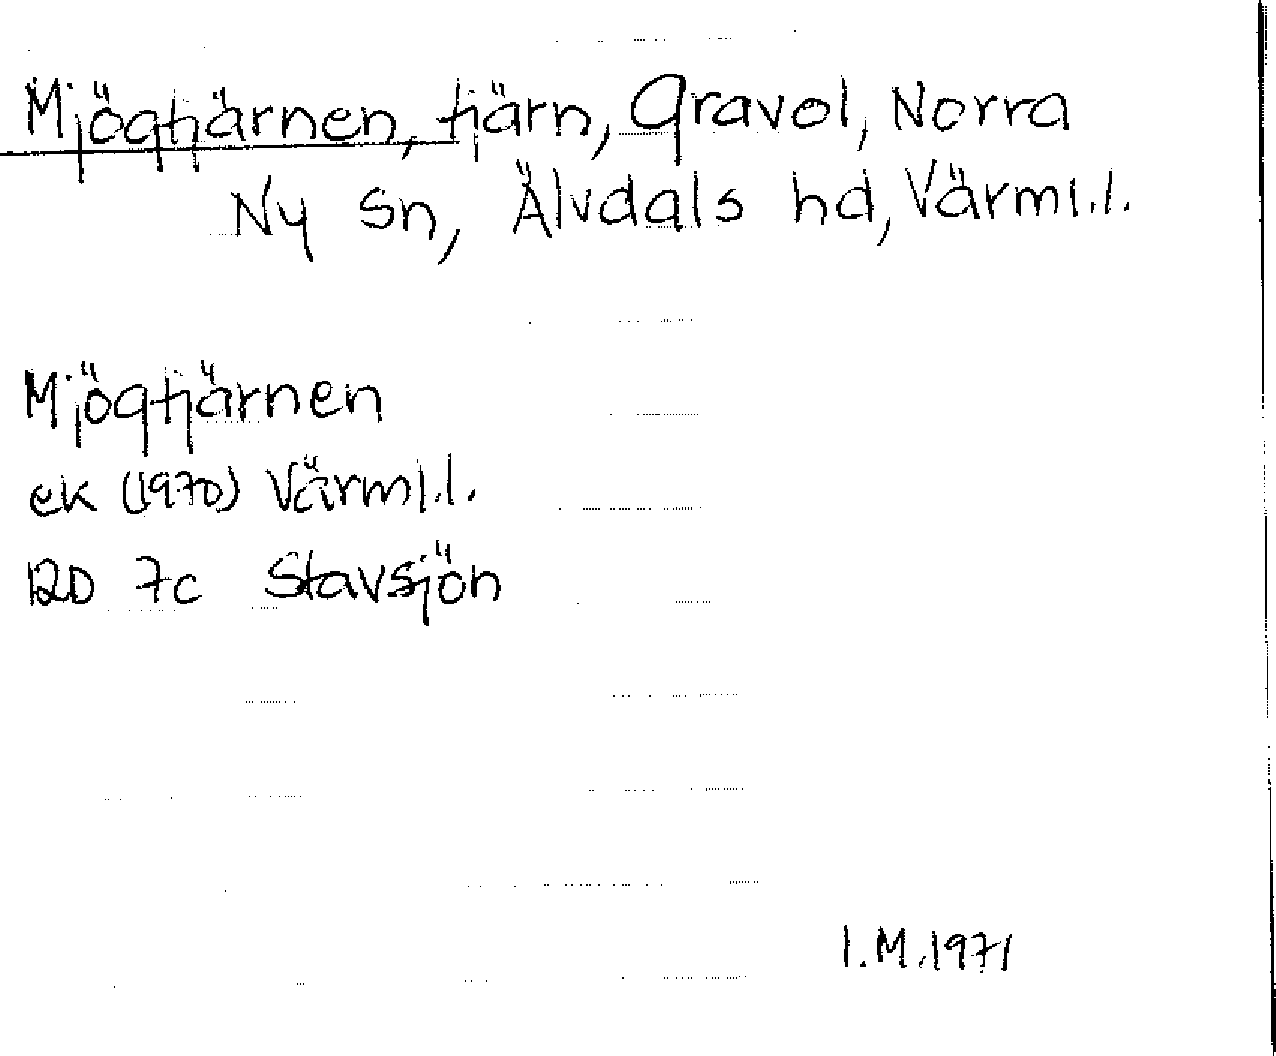 Mjögtjärnen, tjärn, Gravol, Norra
Ny sn, Älvdals hd, Värml.l.
Mjögtjärnen
ek (1970) Värml.l.
12D 7c Stavsjön
I.M.1971